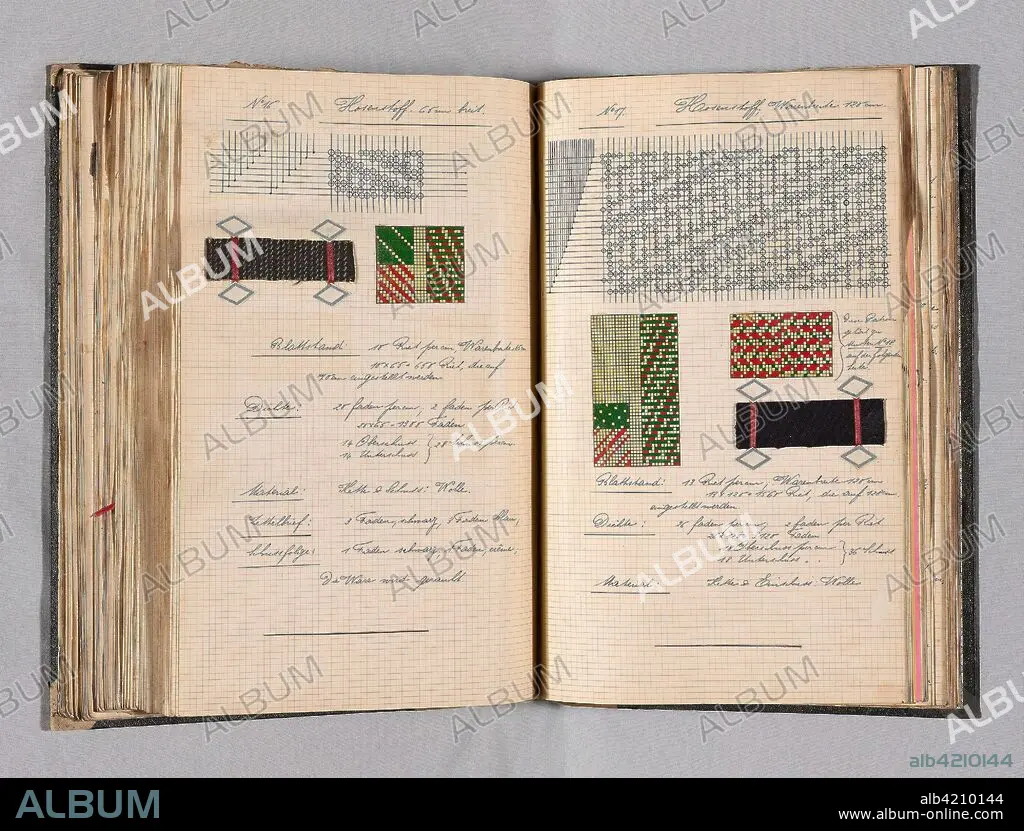 No 16 Hosenstoff. 65 cm breit.
Blattstand: 10 Riet per cm, Warenbreite 65 cm
10 x 65 = 650 Riet, die auf
eingestellt werden
Dichte: 20 Faden per cm, 2 Faden per Riet
20 x 65 = 1300 Faden
14 Oberschuss } 28 Schuss per cm
14 Unterschuss
Material: Kette & Schuss: Wolle.
Zettelbrief: 3 Faden, schwarz, Faden blau,
Schussfolge: 1 Faden schwarz, 1 Faden, crème,
Die Ware wird gerauht
No 17. Hosenstoff, Warenbreite 130 cm.
Diese Patrone
gehört zu
Muster No 18
auf der folgenden
Seite.
Blattstand: Riet per cm, Warenbreite 130 cm
Riet, die auf
eingestellt werden
Dichte: Faden per cm, 2 Faden per Riet
Faden
18 Oberschuss per cm } 36 Schuss
18 Unterschuss " "
Material: Kette & Einschuss: Wolle
ALBUM
alb4210144
ALBUM
alb4210144
www.album-online.com